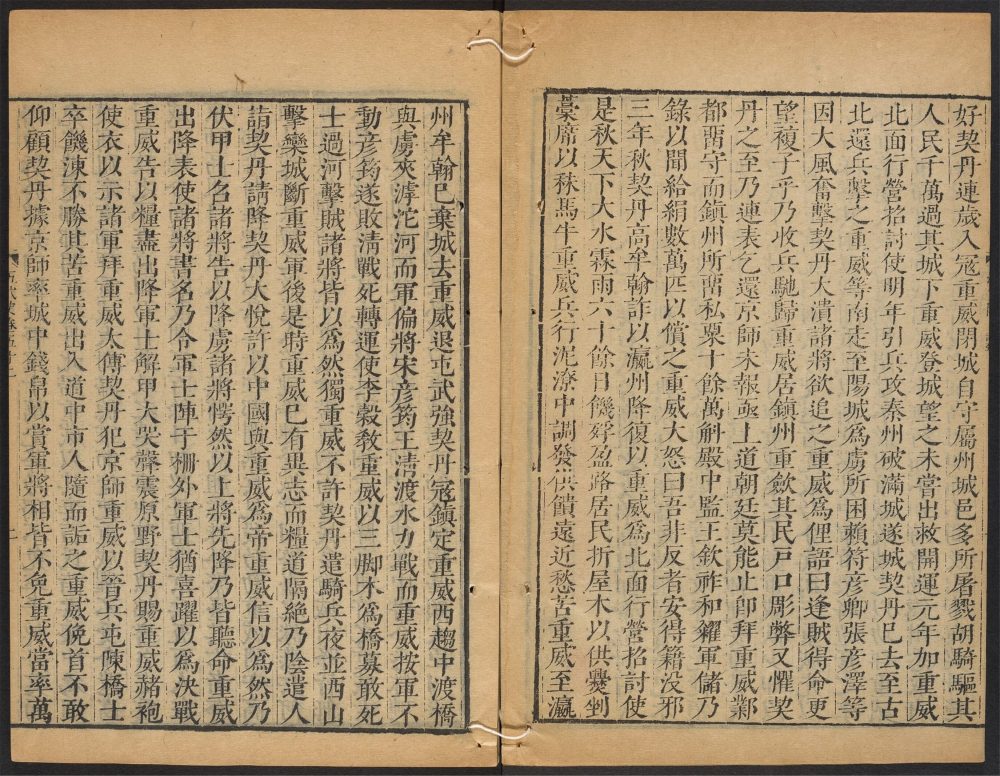 好契丹連歲入冦重威閉城自守屬州城邑多所屠戮胡騎驅其
人民千萬過其城下重威登城望之未嘗出救開運元年加重威
北面行營招討使明年引兵攻泰州破滿城遂城契丹已去至古
北還兵擊之重威等南走至陽城爲虜所困賴符彥卿張彥澤等
因大風奮擊契丹大潰諸將欲追之重威爲俚語曰逢賊得命更
望複子乎乃收兵馳歸重威居鎮州重斂其民戸口彫弊又懼契
丹之至乃連表乞還京師未報亟上道朝廷莫能止卽拜重威鄴
都畱守而鎮州所畱私粟十餘萬斛殿中監王欽祚和糴軍儲乃
錄以聞給絹數萬匹以償之重威大怒曰吾非反者安得籍没邪
三年秋契丹高牟翰詐以瀛州降復以重威爲北面行營招討使
是秋天下大水霖雨六十餘日饑殍盈路居民折屋木以供爨剉
藁席以秣馬牛重威兵行泥潦中調發供饋遠近愁苦重威至瀛
州牟翰已棄城去重威退屯武強契丹冦鎮定重威西趨中渡橋
與虜夾滹沱河而軍偏將宋彥筠王淸渡水力戰而重威按軍不
動彥筠遂敗淸戰死轉運使李榖敎重威以三脚木爲橋募敢死
士過河擊賊諸將皆以爲然獨重威不許契丹遣騎兵夜並西山
擊欒城斷重威軍後是時重威已有異志而糧道隔絶乃陰遣人
詣契丹請降契丹大悅許以中國與重威爲帝重威信以爲然乃
伏甲士名諸將告以降虜諸將愕然以上將先降乃皆聽命重威
出降表使諸將書名乃令軍士陣于柵外軍士猶喜躍以爲決戰
重威告以糧盡出降軍士解甲大哭聲震原野契丹賜重威赭袍
使衣以示諸軍拜重威太傅契丹犯京師重威以晉兵屯陳橋士
卒饑凍不勝其苦重威出入道中市人隨而詬之重威俛首不敢
仰顧契丹據京師率城中錢帛以賞軍將相皆不免重威當率萬